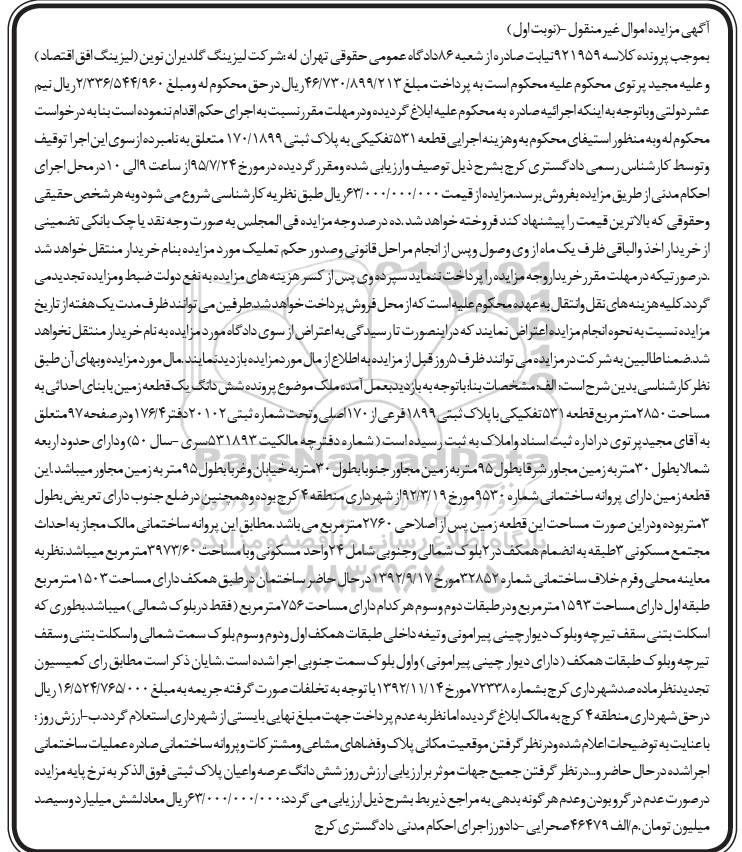 آگهی مزایده اموال غیر منقول -(نوبت اول)
بموجب پرونده کلاسه ۹۲۱۹۵۹نیابت صادره از شعبه ۸۶دادگاه عمومی حقوقی تهران له :شرکت لیزینگ گلدیران نوین (لیزینگ افق اقتصاد)
و علیه مجید پر توی محکوم علیه محکوم است به پرداخت مبلغ ۴۶/۷۳۰/۸۹۹/۲۱۳ریال در حق محکوم له ومبلغ ۲/۳۳۶/۵۴۴/۹۶۰ریال نیم
عشر دولتی وباتوجه به اینکه اجرائیه صادره به محکوم علیه ابلاغ گردیده ودر مهلت مقرر نسبت به اجرای حکم اقدام ننموده است بنا به درخواست
محکوم له وبه منظور استیفای محکوم به وهزینه اجرایی قطعه ۵۳۱تفکیکی به پلاک ثبتی ۱۷۰/۱۸۹۹ متعلق به نامبرده از سوی این اجرا توقیف
وتوسط کارشناس رسمی دادگستری کرج بشرح ذیل توصیف وارزیابی شده ومقرر گردیده در مورخ ۹۵/۷/۲۴از ساعت ۹الی ۱۰در محل اجرای
احکام مدنی از طریق مزایده بفروش برسد.مزایده از قیمت ۶۳/۰۰۰/۰۰۰/۰۰۰ریال طبق نظریه کارشناسی شروع می شود وبه هر شخص حقیقی
وحقوقی که بالاترین قیمت را پیشنهاد کند فروخته خواهد شد.ده درصد وجه مزایده فی المجلس به صورت وجه نقد یا چک بانکی تضمینی
از خریدار اخذ والباقی ظرف یک ماه از وی وصول وپس از انجام مراحل قانونی وصدور حکم تملیک مورد مزایده بنام خریدار منتقل خواهد شد
.درصورتیکه در مهلت مقرر خریدار وجه مزایده را پرداخت ننماید سپرده وی پس از کسر هزینه های مزایده به نفع دولت ضبط ومزایده تجدید می
گردد.کلیه هزینه های نقل وانتقال به عهده محکوم علیه است که از محل فروش پرداخت خواهد شد.طرفین می توانند ظرف مدت یک هفته از تاریخ
مزایده نسبت به نحوه انجام مزایده اعتراض نمایند که در اینصورت تا رسیدگی به اعتراض از سوی دادگاه مورد مزایده به نام خریدار منتقل نخواهد
شد.ضمنا طالبین به شرکت در مزایده می توانند ظرف ۵روز قبل از مزایده به اطلاع از مال مورد مزایده بازدید نمایند.مال مورد مزایده وبهای آن طبق
نظر کارشناسی بدین شرح است: الف: مشخصات بنا: باتوجه به بازدید بعمل آمده ملک موضوع پرونده شش دانگ یک قطعه زمین با بنای احداثی به
مساحت ۲۸۵۰متر مربع قطعه ۵۳۱تفکیکی با پلاک ثبتی ۱۸۹۹فرعی از ۱۷۰اصلی وتحت شماره ثبتی ۲۰۱۰۲دفتر ۱۷۶/۴ودر صفحه ۹۷متعلق
به آقای مجید پر توی در اداره ثبت اسناد واملاک به ثبت رسیده است ( شماره دفترچه مالکیت ۵۳۱۸۹۳سری -سال ۵۰) ودارای حدود اربعه
شمالا بطول ۳۰متر به زمین مجاور شرقا بطول ۹۵متر به زمین مجاور جنوبا بطول ۳۰متر به خیابان وغربا بطول ۹۵متر به زمین مجاور میباشد.این
قطعه زمین دارای پروانه ساختمانی شماره ۹۵۳۰مورخ ۹۲/۳/۱۹از شهرداری منطقه ۴کرج بوده وهمچنین در ضلع جنوب دارای تعریض بطول
۳متر بوده ودر این صورت مساحت این قطعه زمین پس از اصلاحی ۲۷۶۰متر مربع می باشد .مطابق این پروانه ساختمانی مالک مجاز به احداث
مجتمع مسکونی ۳طبقه به انضمام همکف در ۲بلوک شمالی وجنوبی شامل ۲۴واحد مسکونی وبا مساحت ۳۹۷۳/۶۰متر مربع میباشد.نظر به
معاینه محلی وفرم خلاف ساختمانی شماره ۳۲۸۵۲مورخ ۱۳۹۲/۹/۱۷در حال حاضر ساختمان در طبق همکف دارای مساحت ۱۵۰۳متر مربع
طبقه اول دارای مساحت ۱۵۹۳متر مربع ودر طبقات دوم وسوم هر کدام دارای مساحت ۷۵۶متر مربع (فقط در بلوک شمالی) میباشد.بطوری که
اسکلت بتنی سقف تیرچه وبلوک دیوار چینی پیرامونی وتیغه داخلی طبقات همکف اول ودوم وسوم بلوک سمت شمالی واسکلت بتنی وسقف
تیرچه وبلوک طبقات همکف (دارای دیوار چینی پیرامونی) واول بلوک سمت جنوبی اجرا شده است .شایان ذکر است مطابق رای کمیسیون
تجدیدنظر ماده صد شهرداری کرج بشماره ۷۲۳۳۸مورخ ۱۳۹۲/۱۱/۱۴با توجه به تخلفات صورت گرفته جریمه به مبلغ ۱۶/۵۲۴/۷۶۵/۰۰۰ریال
در حق شهرداری منطقه ۴ کرج به مالک ابلاغ گردیده اما نظر به عدم پرداخت جهت مبلغ نهایی بایستی از شهرداری استعلام گردد.ب-ارزش روز :
با عنایت به توضیحات اعلام شده ودر نظر گرفتن موقعیت مکانی پلاک وفضاهای مشاعی ومشترکات وپروانه ساختمانی صادره عملیات ساختمانی
اجرا شده در حال حاضر و..در نظر گرفتن جمیع جهات موثر بر ارزیابی ارزش روز شش دانگ عرصه واعیان پلاک ثبتی فوق الذکر به نرخ پایه مزایده
در صورت عدم در گرو بودن وعدم هر گونه بدهی به مراجع ذیربط بشرح ذیل ارزیابی می گردد:۶۳/۰۰۰/۰۰۰/۰۰۰ریال معادلشش میلیارد وسیصد
میلیون تومان .م/الف ۴۶۴۷۹صحرایی -دادورز اجرای احکام مدنی دادگستری کرج
ParsNamadData
پایگاه اطلاع رسانی مناقصه و مزایده
۰۲۱-۸۸۳۴۹۶۷۰-۵